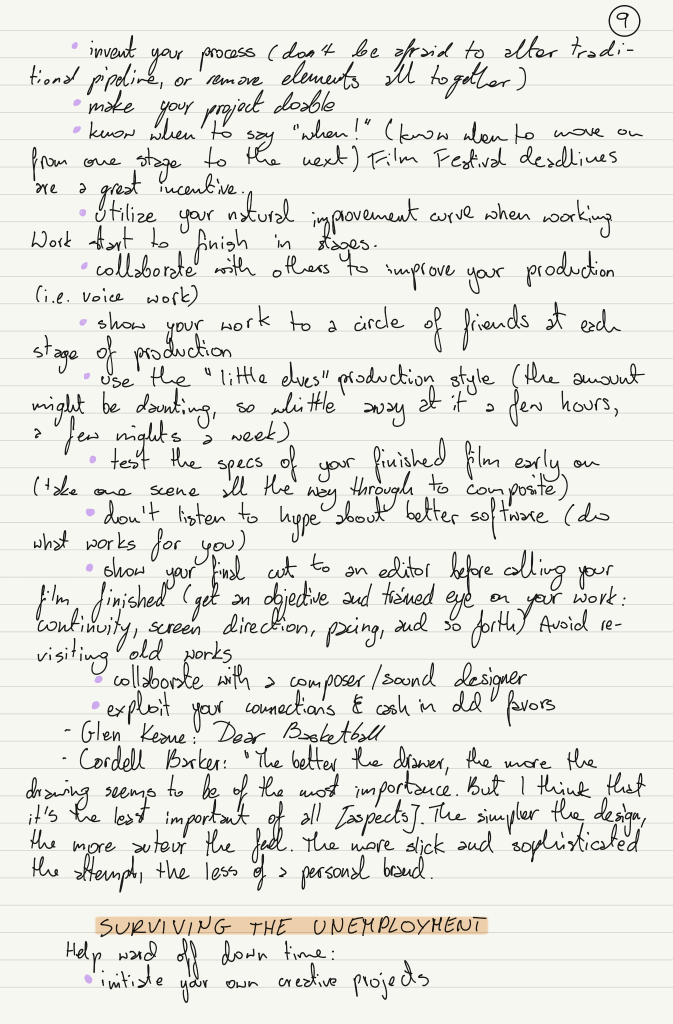 9
• invent your process (don't be afraid to alter tradi-
tional pipeline, or remove elements all together)
• make your project doable
• know when to say "when!" (know when to move on
from one stage to the next) Film Festival deadlines
are a great incentive.
• utilize your natural improvement curve when working
Work start to finish in stages.
• collaborate with others to improve your production
(i.e. voice work)
• show your work to a circle of friends at each
stage of production
• use the "little elves" production style (the amount
might be daunting, so whittle away at it a few hours,
a few nights a week)
• test the specs of your finished film early on
(take one scene all the way through to composite)
• don't listen to hype about better software (do
what works for you)
• show your final cut to an editor before calling your
film finished (get an objective and trained eye on your work:
continuity, screen direction, pacing, and so forth) Avoid re-
visiting old works
• collaborate with a composer/sound designer
• exploit your connections & cash in old favors
- Glen Keane: Dear Basketball
- Cordell Barker: "The better the drawer, the more the
drawing seems to be of the most importance. But I think that
it's the least important of all [aspects]. The simpler the design,
the more auteur the feel. The more slick and sophisticated
the attempt, the less of a personal brand.
SURVIVING THE UNEMPLOYMENT
Help ward off down time:
• initiate your own creative projects